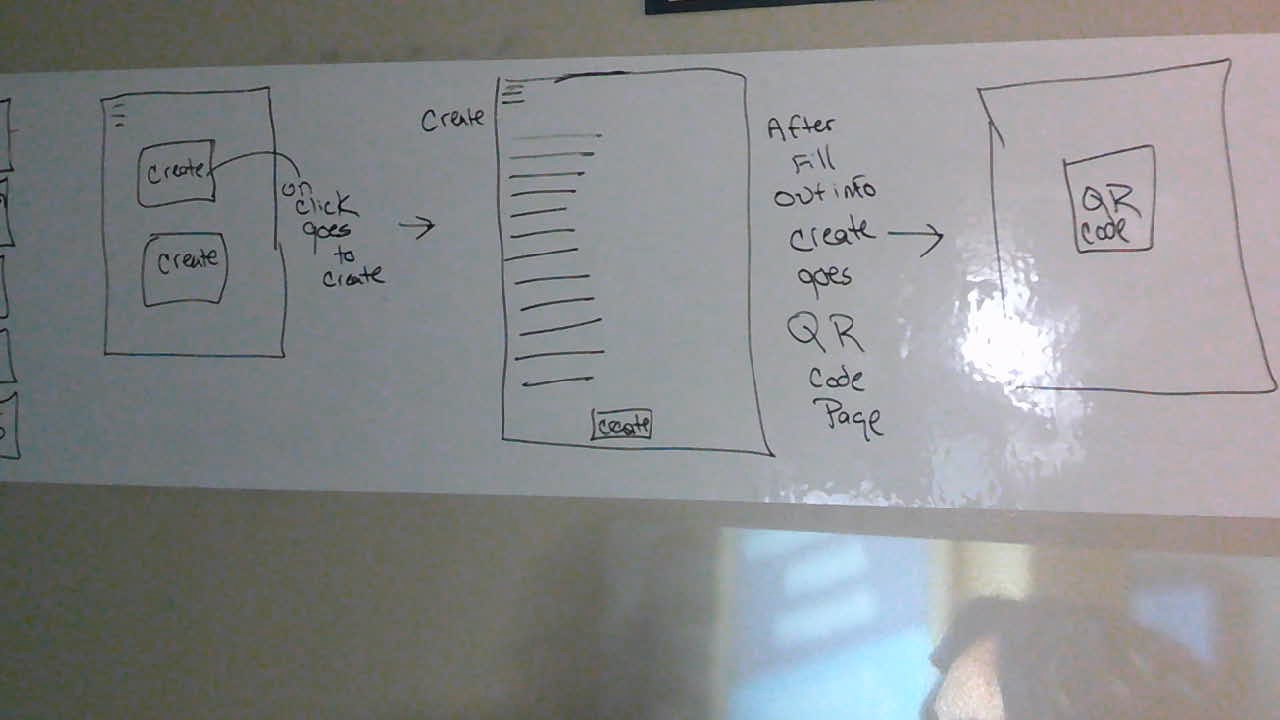 Create
Create
on
click
goes
to
create
Create
Create
After
Fill
out info
create
goes
QR
code
Page
QR
code